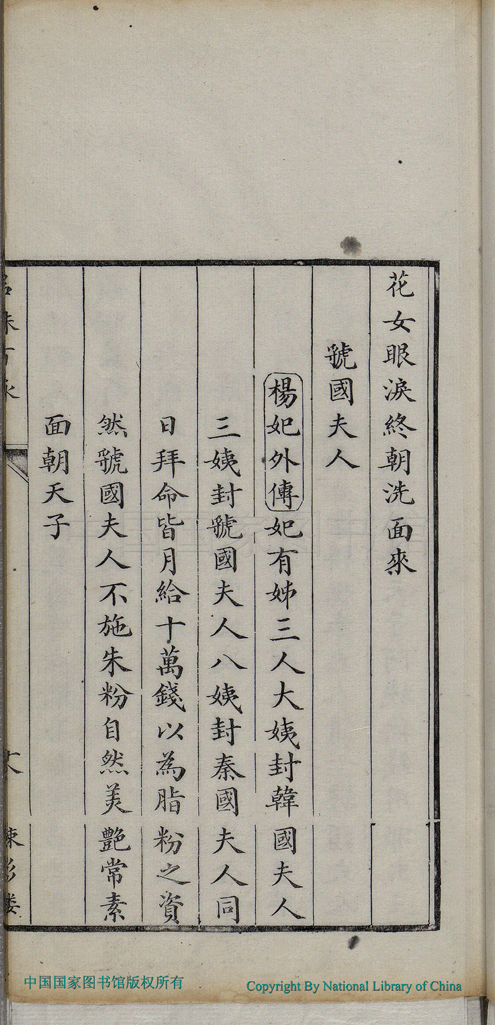 花女眼淚終朝洗面來
虢國夫人
楊妃外傳妃有姊三人大姨封韓國夫人
三姨封虢國夫人八姨封秦國夫人同
日拜命皆月給十萬錢以為脂粉之資
然虢國夫人不施朱粉自然美艷常素
面朝天子
中国国家图书馆版权所有
Copyright By National Library of China